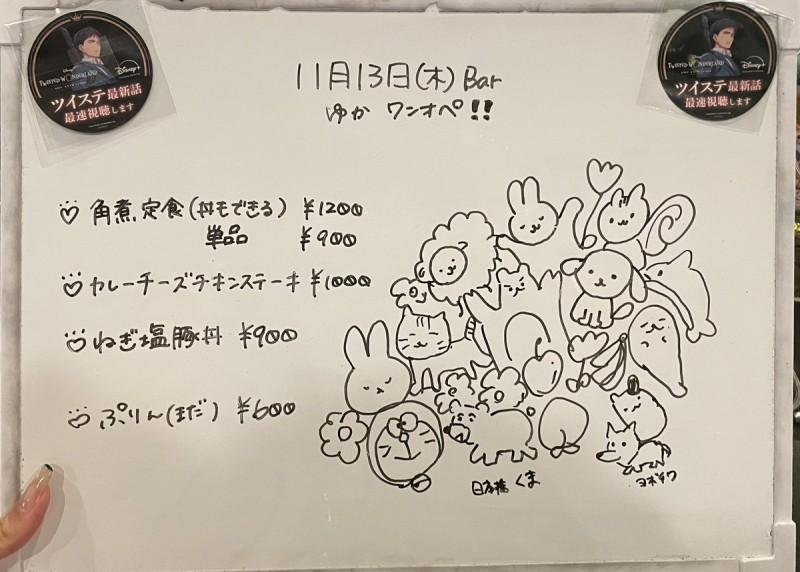 TWISTED WONDERLAND
Disney+
ツイステ最新話
最速視聴します
TWISTED WONDERLAND
Disney+
ツイステ最新話
最速視聴します
11月13日(木) Bar
ゆか ワンオペ!!
角煮定食(丼もできる) ¥1200
単品 ¥900
カレーチーズチキンステーキ ¥1000
ねぎ塩豚丼 ¥900
ぷりん(まだ) ¥600
日本橋 くま